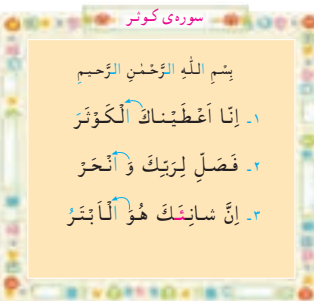 سوره‌ی کوثر
بِسْمِ اللّٰهِ الرَّحْمٰنِ الرَّحیمِ
۱ـ اِنّا اَعْطَیْناكَ الْكَوْثَرَ
۲ـ فَصَلِّ لِرَبِّكَ وَ انْحَرْ
۳ـ اِنَّ شانِئَكَ هُوَ الْاَبْتَرُ